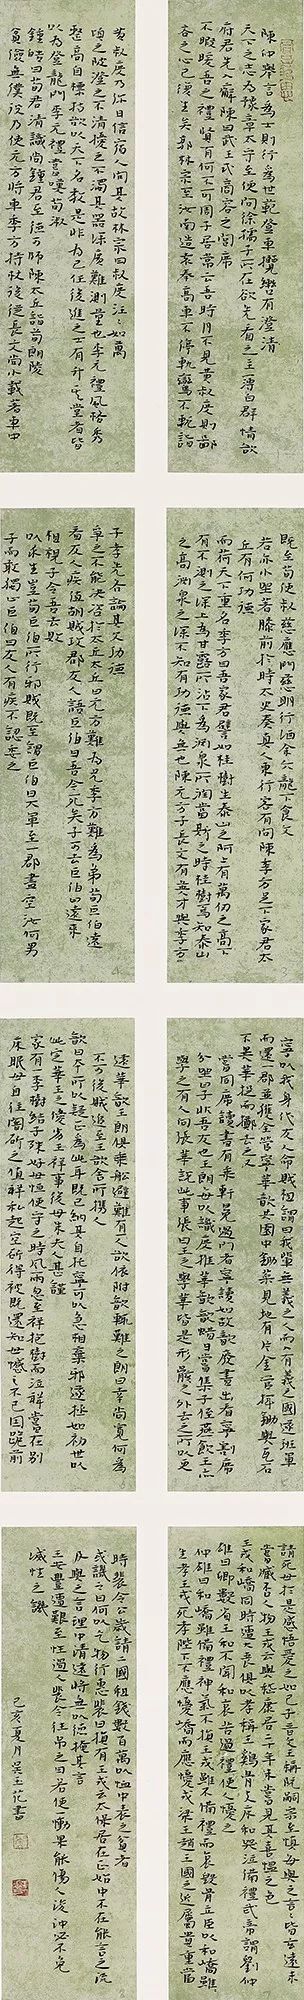 陳仲舉言為士則行為世範登車攬轡有澄清
天下之志為豫章太守至便問徐孺子所在欲先看之主薄白群情欲
府君先入廨陳曰武王式商容之閭席
不暇暖吾之禮賢有何不可周子居常云吾時月不見黃叔度則鄙
吝之心已復生矣郭林宗至汝南造袁奉高車不停軌鸞不輟軛詣
黃叔度乃彌日信宿人問其故林宗曰叔度汪汪如萬
頃之陂澄之不清擾之不濁其器深廣難測量也李元禮風格秀
整高自標持欲以天下名教是非為己任後進之士有升其堂者皆
以為登龍門李元禮嘗嘆荀淑
鍾皓曰荀君清識尚鍾君至德可師陳太丘詣荀朗陵
貧儉無僕役乃使元方將車季方持杖後從長文尚小載著車中
既至荀使叔慈應門慈明行酒余六龍下食文
若亦小坐著膝前於時太史奏真人東行客有問陳季方足下家君太
丘有何功德
而荷天下重名季方曰吾家君譬如桂樹生泰山之阿上有萬仞之高下
有不測之深上為甘露所沾下為淵泉所潤當斯之時桂樹焉知泰山
之高淵泉之深不知有功德與無也陳元方子長文有英才與季方
子孝先各論其父功德
爭之不能決咨於太丘太丘曰元方難為兄季方難為弟荀巨伯遠
看友人疾值胡賊攻郡友人語巨伯曰吾今死矣子可去巨伯曰遠來
相視子令吾去敗
以求生豈荀巨伯所行邪賊既至謂巨伯曰大軍至一郡盡空汝何男
子而敢獨止巨伯曰友人有疾不忍委之
寧以我身代友人命賊相謂曰我輩無義之人而入有義之國遂班軍
而還一郡並獲全管寧華歆共園中鋤菜見地有片金管揮鋤與瓦石
不異華捉而擲去之又
嘗同席讀書有乘軒冕過門者寧讀如故歆廢書出看寧割席
分坐曰子非吾友也王朗每以識度推華歆歆蠟日嘗集子侄燕飲王亦
學之有人向張華說此事張曰王之學華皆是形骸之外去之所以更
遠華歆王朗俱乘船避難有人欲依附歆輒難之朗曰幸尚寬何為
不可後賊追至王欲舍所攜人
歆曰本所以疑正為此耳既已納其自托寧可以急相棄邪遂拯如初世以
此定華王之優劣王祥事後母朱夫人甚謹
家有一李樹結子殊好母恆使守之時風雨忽至祥抱樹而泣祥嘗在別
床眠母自往闇斫之值祥私起空斫得被既還知母憾之不已因跪前
請死母於是感悟愛之如己子晉文王稱阮嗣宗至慎每與之言言皆玄遠未
嘗臧否人物王戎云與嵇康居二十年未嘗見其喜慍之色
王戎和嶠同時遭大喪俱以孝稱王雞骨支床和哭泣備禮武帝謂劉仲
雄曰卿數省王和不聞和哀苦過禮使人憂之
仲雄曰和嶠雖備禮神氣不損王戎雖不備禮而哀毀骨立臣以和嶠雖
生孝王戎死孝陛下不應憂嶠而應憂戎梁王趙王國之近屬貴重當
時裴令公歲請二國租錢數百萬以恤中表之貧者
或譏之曰何以乞物行惠裴曰損有王戎云太保居在正始中不在能言之流
及與之言理中清遠將無以德掩其言
王安豐遭艱至性過人裴令往吊之曰若使一慟果能傷人浚沖必不免
滅性之譏
己亥夏月吳玉花書